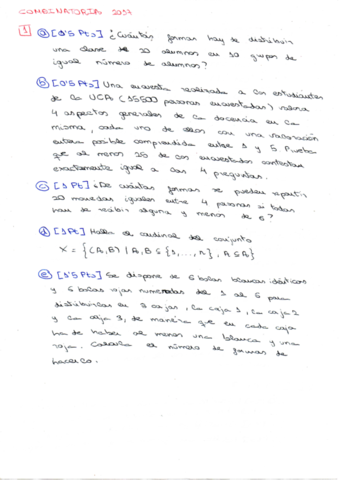 COMBINATORIA 2017
1 a) [0'5 Pts] ¿Cuántas formas hay de distribuir
una clase de 20 alumnos en 10 grupos de
igual número de alumnos?
b) [0'5 Pts] Una encuesta realizada a los estudiantes
de la UCA (15500 personas encuestadas) valora
4 aspectos generales de la docencia en la
misma, cada uno de ellos con una valoración
entera posible comprendida entre 1 y 5 Prueba
que al menos 25 de los encuestados contestan
exactamente igual a las 4 preguntas.
c) [1 Pt] ¿De cuántas formas se pueden repartir
20 monedas iguales entre 4 personas si todas
han de recibir alguna y menos de 6?
d) [1 Pt] Halla el cardinal del conjunto
X = {(A,B) / A,B ⊆ {1,...,n}, A ⊆ B}
e) [1'5 Pts] Se dispone de 6 bolas blancas idénticas
y 6 bolas rojas numeradas del 1 al 6 para
distribuirlas en 3 cajas, la caja 1, la caja 2
y la caja 3, de manera que en cada caja
ha de haber al menos una blanca y una
roja. Calcula el número de formas de
hacerlo.